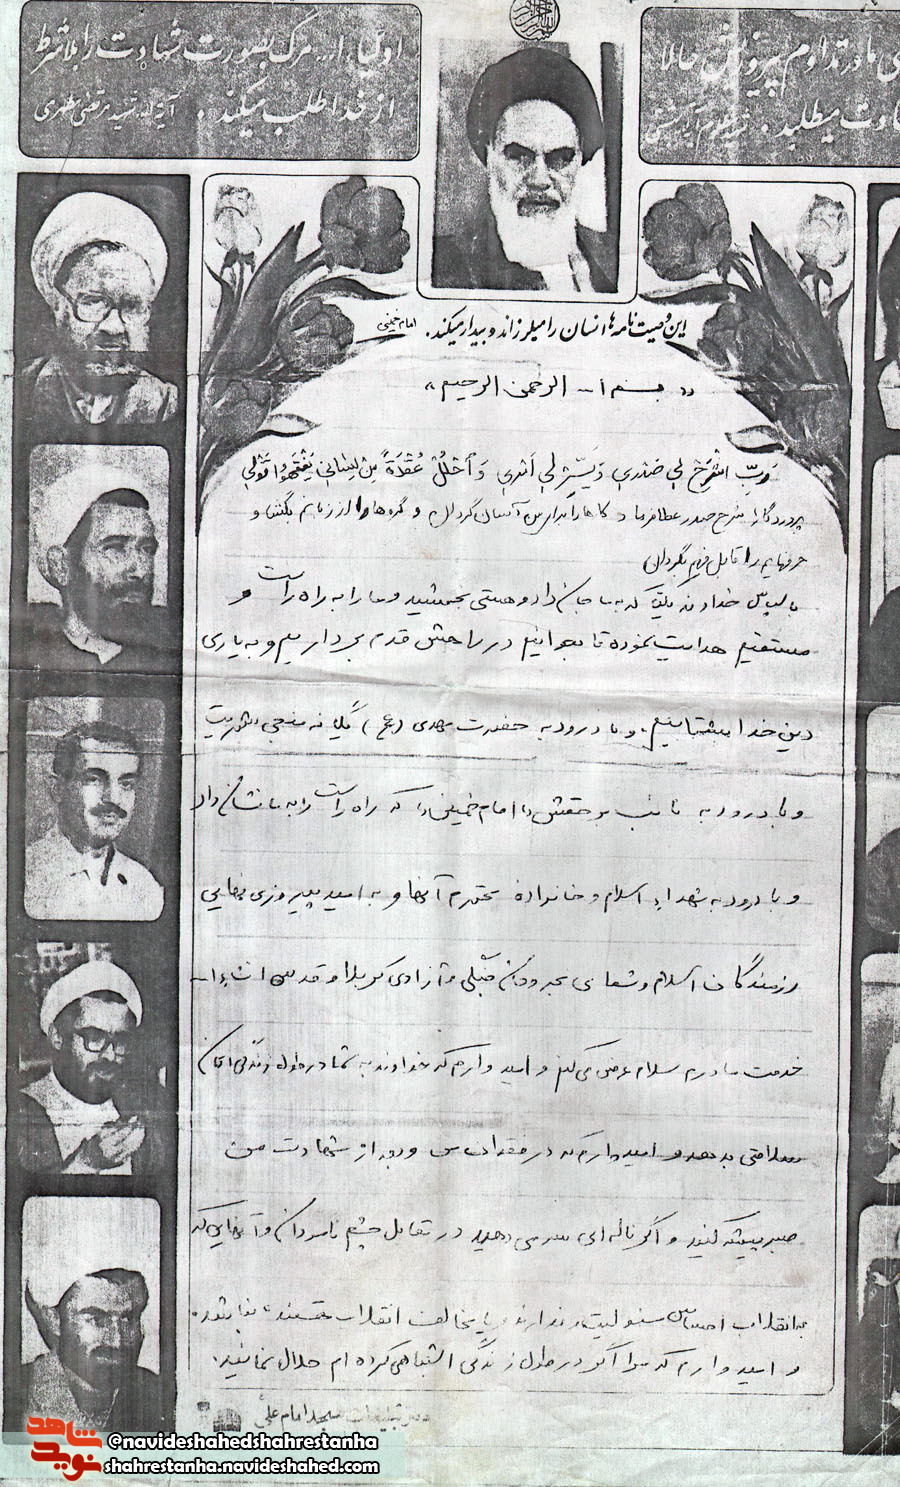 اولیاء ا... مرگ بصورت شهادت را بلاشرط
از خدا طلب میکند. آیة اله شهید مرتضی مطهری
ی ما در تداوم پیروزیش حالا
میطلبد.
این وصیت نامه ها انسان را میلرزاند و بیدار میکند. امام خمینی
«بسم ا... الرحمن الرحیم»
رَبِّ اشْرَحْ لی صَدْری وَ یَسِّرْ لی اَمْری وَ احْلُلْ عُقْدَةً مِنْ لِسانی یَفْقَهُوا قَوْلی
پروردگارا شرح صدر عطا فرما و کارها را بر من آسان گردان و گره ها را از زبانم بگشا و
حرفهایم را قابل فهم بگردان
با سپاس خداوند یکتا که به ما جان داد و هستی بخشید و ما را به راه راست و
مستقیم هدایت نموده تا بتوانیم در راهش قدم برداریم و به یاری
دین خدا بشتابیم. و با درود به حضرت مهدی (عج) یگانه منجی بشریت
و با درود به نائب بر حقش «امام خمینی» که راه راست را به ما نشان داد
و با درود به شهداء اسلام و خانواده محترم آنها و به امید پیروزی نهایی
رزمندگان اسلام و شفای مجروحان جنگی و آزادی کربلا و قدس انشاءا...
خدمت مادرم سلام عرض می کنم و امیدوارم که خداوند به شما در طول زندگی اتان
سلامتی بدهد و امیدوارم که در فقدان من و بعد از شهادت من
صبر پیشه کنید و اگر ناله ای سر می دهید در مقابل چشم نامردان و آنهایی که
به انقلاب احساس مسئولیت ندارند و یا مخالف انقلاب هستند نباشد.
و امیدوارم که مرا اگر در طول زندگی اشتباهی کرده ام حلال نمائید.
دفتر تبلیغات مسجد امام علی
شاهد
نوید
@navideshahedshahrestanha
shahrestanha.navideshahed.com